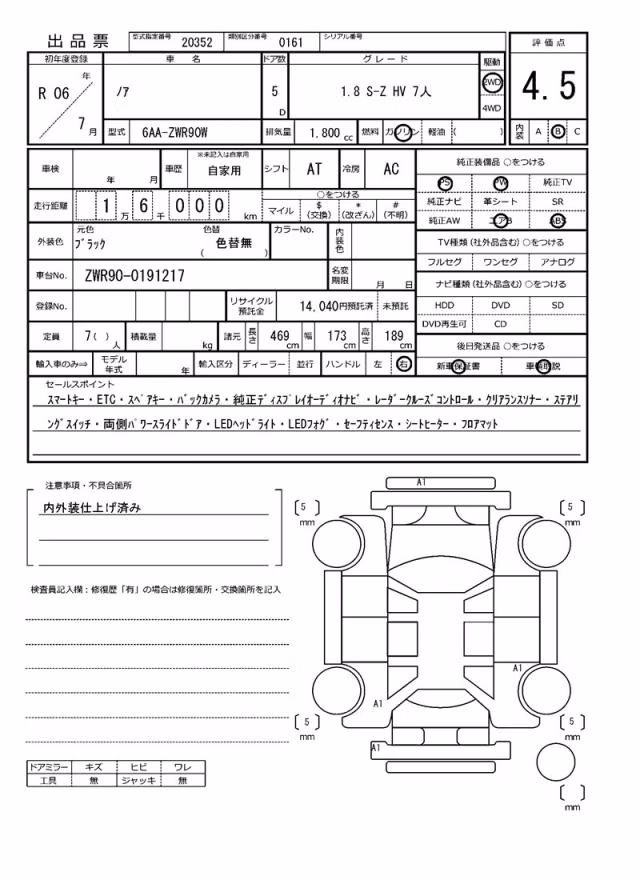 出品票 型式指定番号 20352 類別区分番号 0161 シリアル番号
評価点
4.5
内装 A B C
初年度登録 車名 ドア数 グレード 駆動
R 06 年 7 月 ノア 5 D 1.8 S-Z HV 7人 2WD 4WD
型式 6AA-ZWR90W 排気量 1.800 cc 燃料 ガソリン 軽油 ( )
車検 年 月 車歴 ※未記入は自家用 自家用 シフト AT 冷房 AC
走行距離 1 万 6 千 0 0 0 km
○をつける
マイル $ (交換) * (改ざん) # (不明)
外装色 元色 ブラック 色替 色替無 ( ) カラーNo. 内装色
車台No. ZWR90-0191217 名変期限 月 日
登録No. リサイクル預託金 14,040円預託済 未預託
定員 7( ) 人 積載量 kg 諸元 長さ 469 cm 幅 173 cm 高さ 189 cm
輸入車のみ⇒ モデル年式 年 輸入区分 ディーラー 並行 ハンドル 左 右
純正装備品 ○をつける
PS PW 純正TV
純正ナビ 革シート SR
純正AW エアB ABS
TV種類(社外品含む)○をつける
フルセグ ワンセグ アナログ
ナビ種類(社外品含む)○をつける
HDD DVD SD
DVD再生可 CD
後日発送品 ○をつける
新車保証書 車輌取説
セールスポイント
スマートキー・ETC・スペアキー・バックカメラ・純正ディスプレイオーディオナビ・レーダークルーズコントロール・クリアランスソナー・ステアリ
ングスイッチ・両側パワースライドドア・LEDヘッドライト・LEDフォグ・セーフティセンス・シートヒーター・フロアマット
注意事項・不具合箇所
内外装仕上げ済み
検査員記入欄:修復歴「有」の場合は修復箇所・交換箇所を記入
ドアミラー キズ ヒビ ワレ
工具 無 ジャッキ 無
A1
5 mm
5 mm
A1
A1
5 mm
5 mm
A1
mm